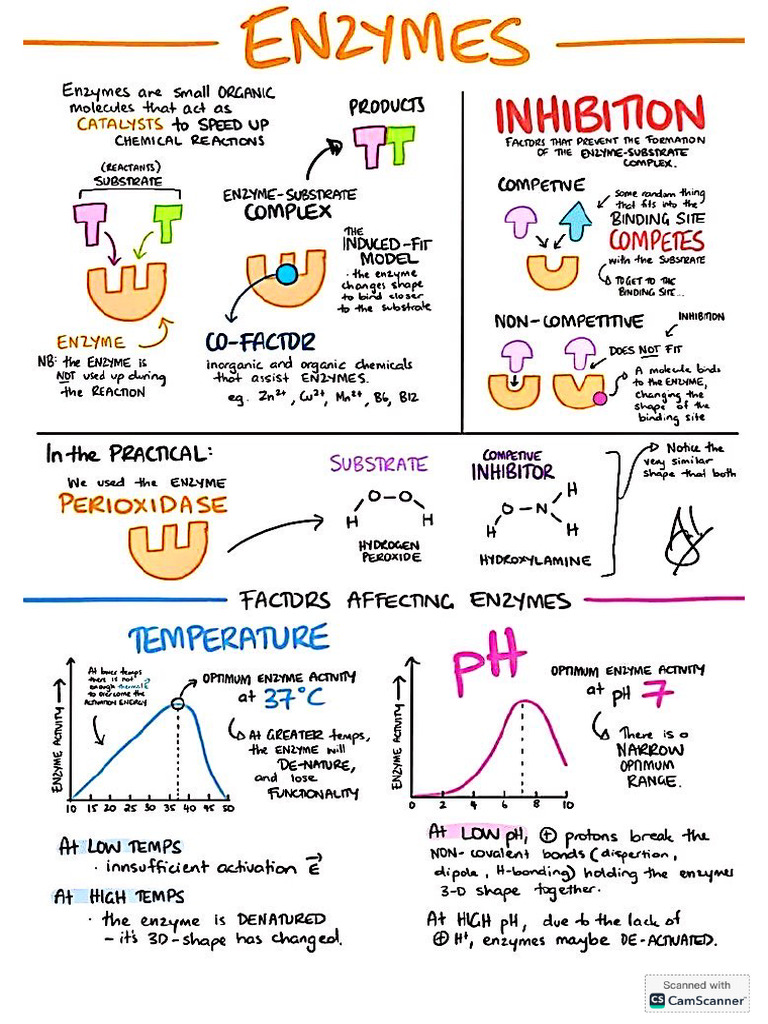 ENZYMES
Enzymes are small ORGANIC
molecules that act as
CATALYSTS to SPEED UP
CHEMICAL REACTIONS
(REACTANTS)
SUBSTRATE
ENZYME
NB: the ENZYME is
NOT used up during
the REACTION
PRODUCTS
ENZYME-SUBSTRATE
COMPLEX
THE
INDUCED-FIT
MODEL
· the enzyme
changes shape
to bind closer
to the substrate
CO-FACTOR
inorganic and organic chemicals
that assist ENZYMES.
eg. Zn²⁺, Cu²⁺, Mn²⁺, B6, B12
INHIBITION
FACTORS THAT PREVENT THE FORMATION
OF THE ENZYME-SUBSTRATE
COMPLEX.
COMPETIVE
some random thing
that fits into the
BINDING SITE
COMPETES
with the SUBSTRATE
TO GET TO THE
BINDING SITE...
NON-COMPETITIVE
INHIBITION
DOES NOT FIT
A molecule binds
to the ENZYME,
changing the
shape of the
binding site
In the PRACTICAL:
We used the ENZYME
PERIOXIDASE
SUBSTRATE
H O-O H
HYDROGEN
PEROXIDE
COMPETIVE
INHIBITOR
H O-N H H
HYDROXYLAMINE
Notice the
very similar
shape that both
FACTORS AFFECTING ENZYMES
TEMPERATURE
ENZYME ACTIVITY
At lower temps
there is not
enough thermal E
to overcome the
ACTIVATION ENERGY
OPTIMUM ENZYME ACTIVITY
at 37°C
At GREATER temps,
the ENZYME will
DE-NATURE,
and lose
FUNCTIONALITY
10 15 20 25 30 35 40 45 50
At LOW TEMPS
· innsufficient activation E
At HIGH TEMPS
· the enzyme is DENATURED
- it's 3D-shape has changed.
pH
ENZYME ACTIVITY
OPTIMUM ENZYME ACTIVITY
at pH 7
There is a
NARROW
OPTIMUM
RANGE.
0 2 4 6 8 10
At LOW pH, ⊕ protons break the
NON-covalent bonds (dispertion,
dipole, H-bonding) holding the enzymes
3-D shape together.
At HIGH pH, due to the lack of
⊕ H⁺, enzymes maybe DE-ACTIVATED.
Scanned with
CS CamScanner